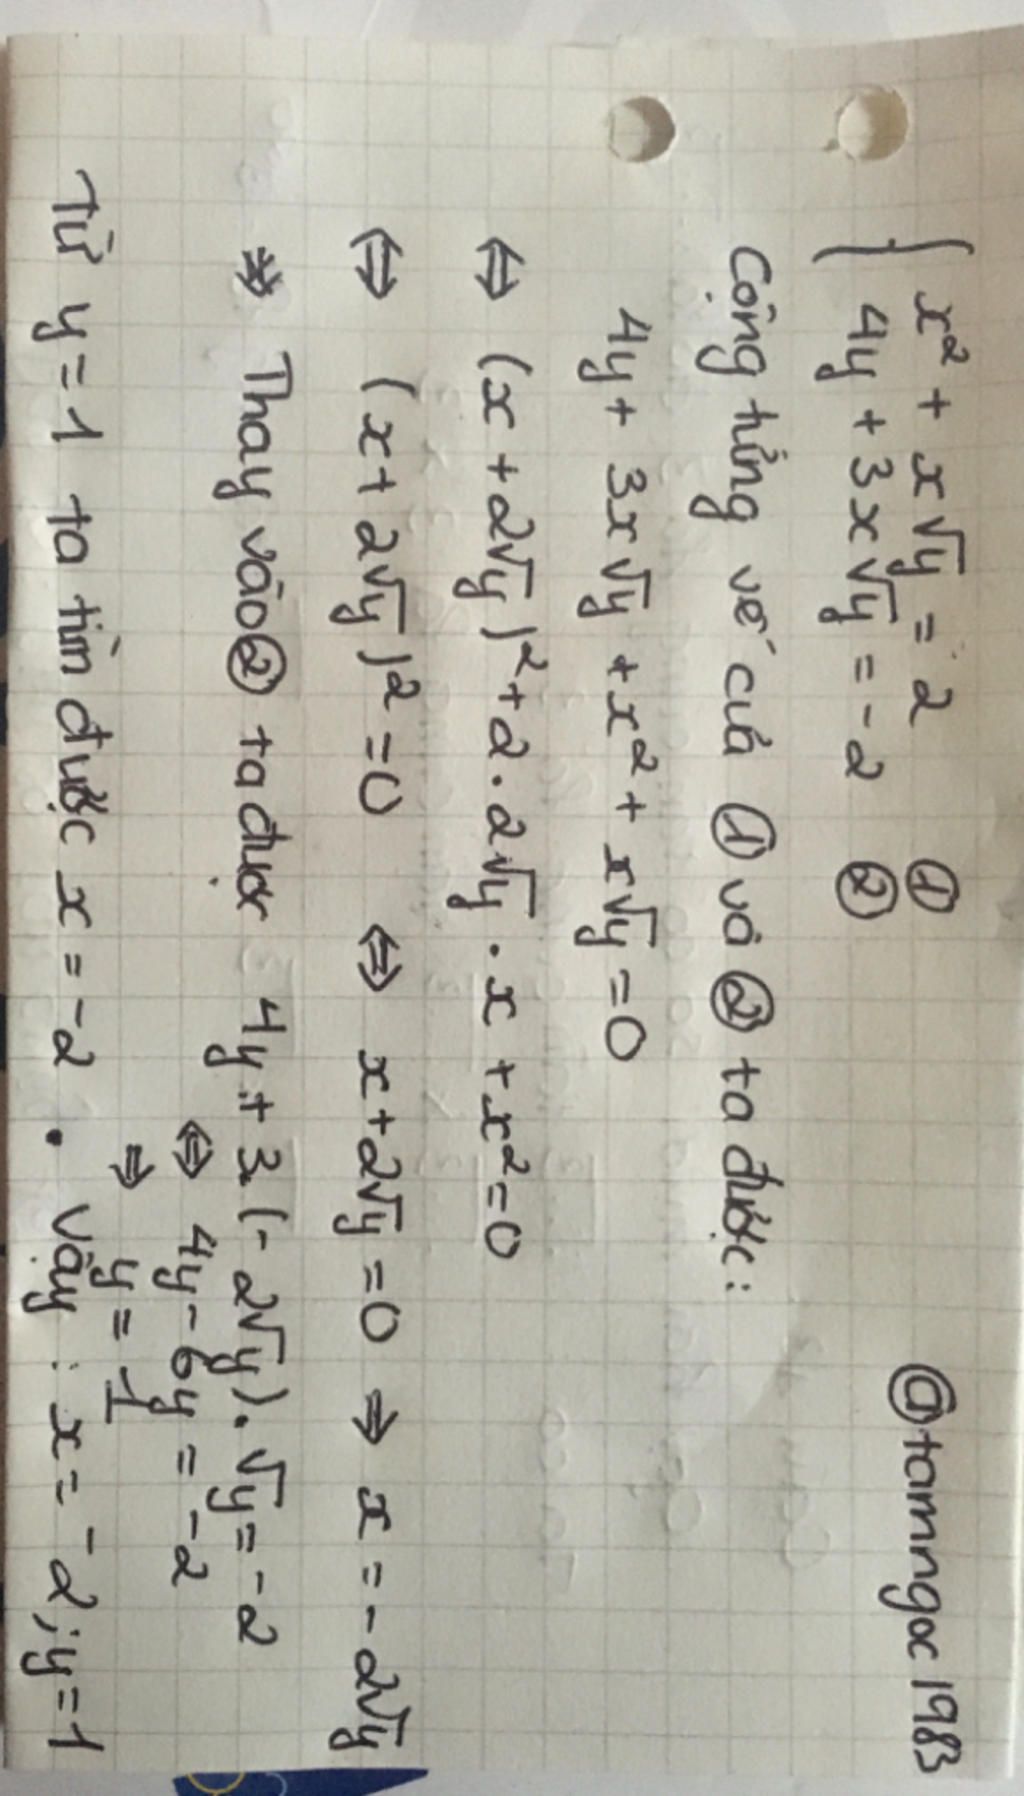 @tamngoc1983
{ x² + x√y = 2 ①
4y + 3x√y = -2 ②
Cộng từng vế của ① và ② ta được:
4y + 3x√y + x² + x√y = 0
⇔ (x + 2√y)² + 2 . 2√y . x + x² = 0
⇔ (x + 2√y)² = 0 ⇔ x + 2√y = 0 ⇒ x = -2√y
⇒ Thay vào ② ta được 4y + 3.(-2√y).√y = -2
⇔ 4y - 6y = -2
⇒ y = 1
Từ y = 1 ta tìm được x = -2 . Vậy : x = -2 ; y = 1